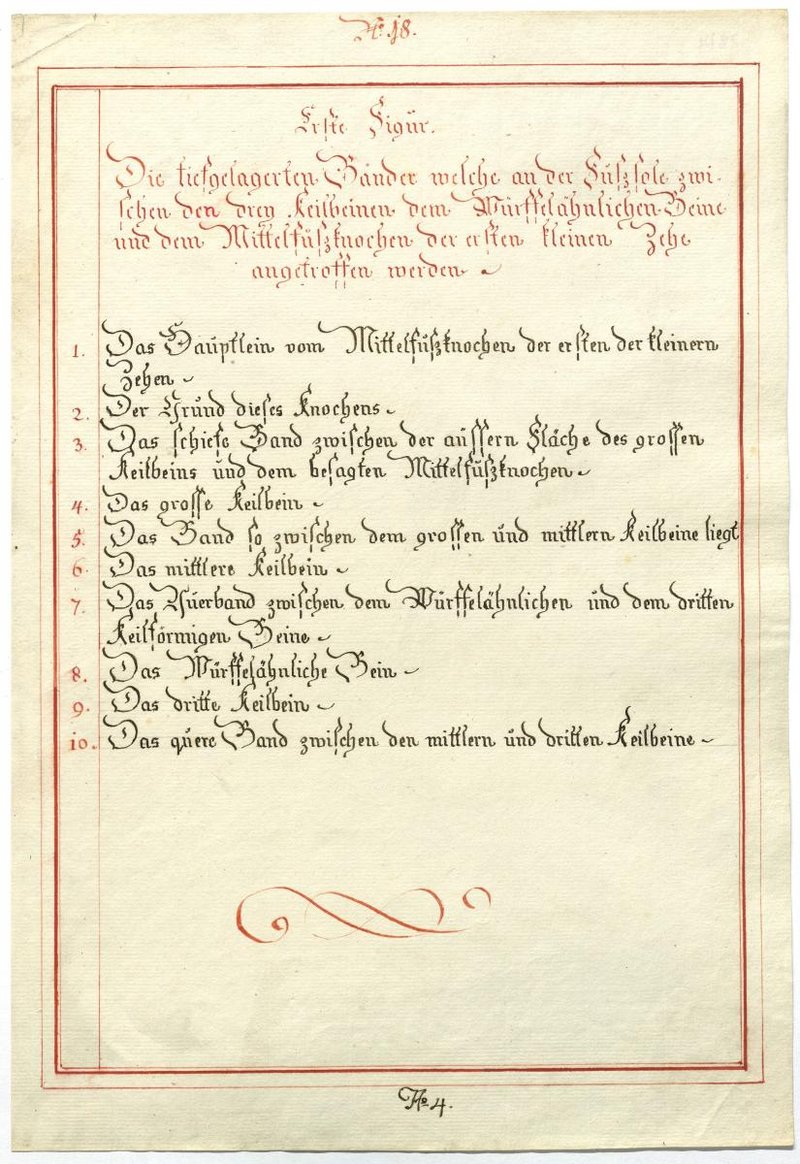 No. 18.
Erste Figur.
Die tiefgelagerten Bänder welche an der Fußsole zwi-
schen den drey Keilbeinen dem Würffelähnlichen Beine
und dem Mittelfußknochen der ersten kleinen Zehe
angetroffen werden
1. Das Häuptlein vom Mittelfußknochen der ersten der kleinern
Zehen
2. Der Grund dieses Knochens
3. Das schiefe Band zwischen der äussern Fläche des grossen
Keilbeins und dem besagten Mittelfußknochen
4. Das grosse Keilbein
5. Das Band so zwischen dem grossen und mittlern Keilbeine liegt
6. Das mittlere Keilbein
7. Das Querband zwischen dem Würffelähnlichen und dem dritten
Keilförmigen Beine
8. Das Würffelähnliche Bein
9. Das dritte Keilbein
10. Das quere Band zwischen den mittlern und dritten Keilbeine
No. 4.